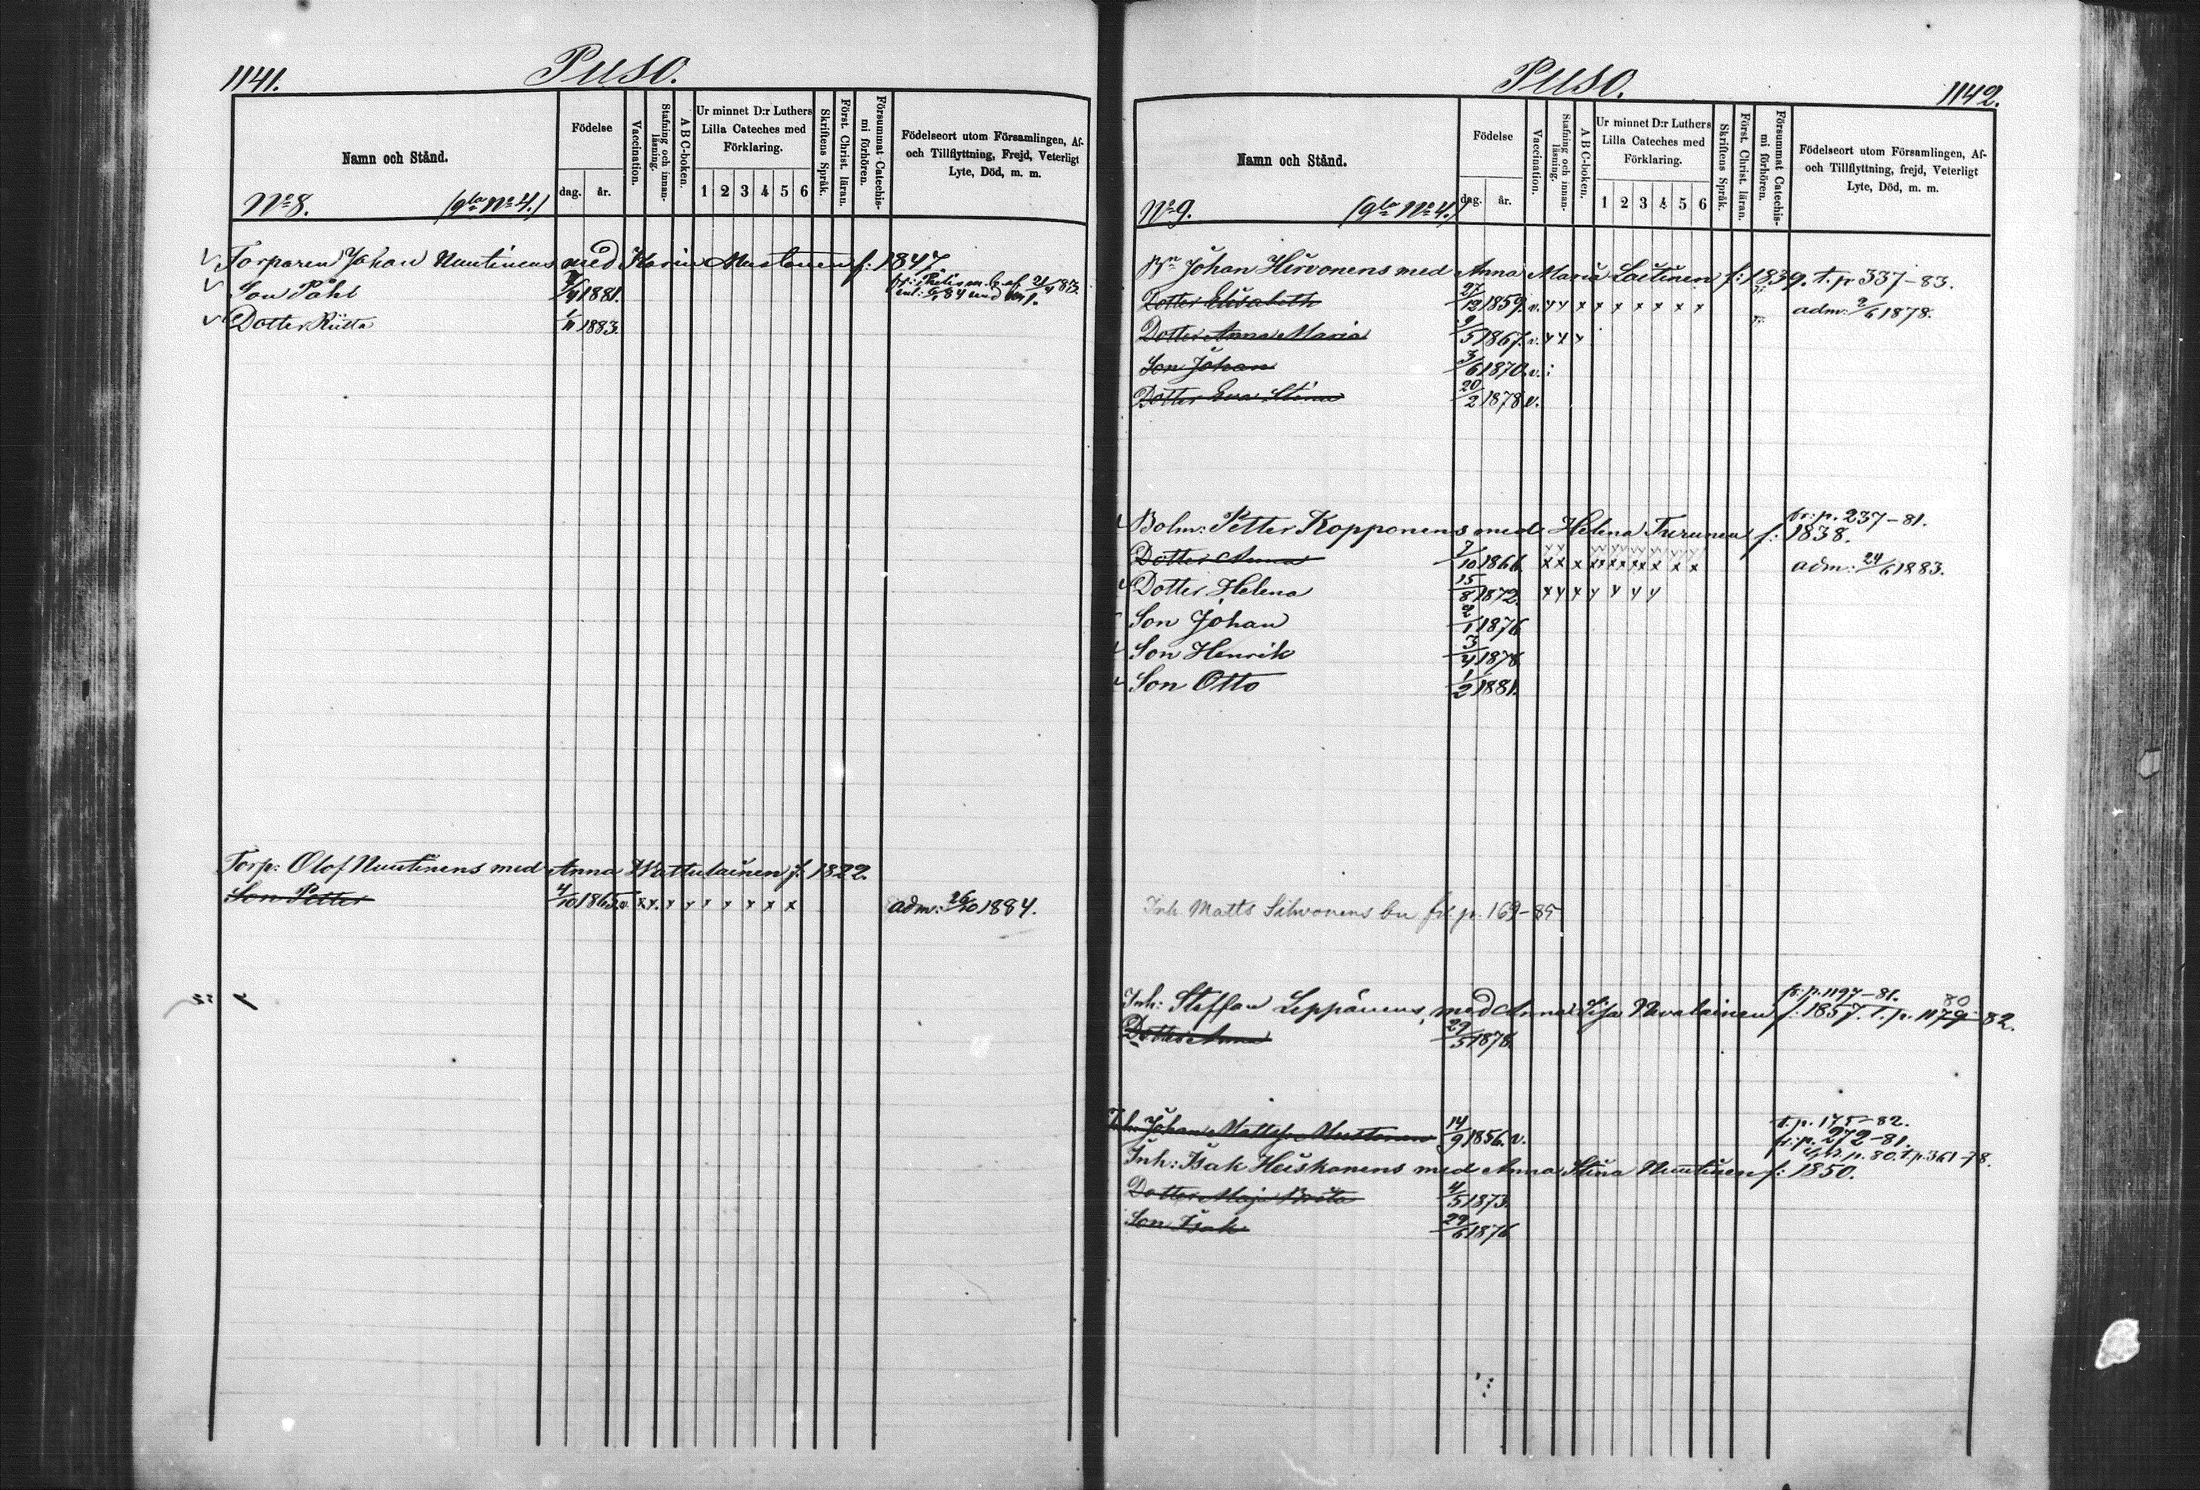 1141.
Puso.
Namn och Stånd.
Födelse
dag. år.
Vaccination.
Stafning och innan-läsning.
A B C-boken.
Ur minnet D:r Luthers Lilla Cateches med Förklaring.
1 2 3 4 5 6
Skriftens Språk.
Först. Christ. läran.
Försummat Catechis-mi förhören.
Födelseort utom Församlingen, Af-
och Tillflyttning, Frejd, Veterligt
Lyte, Död, m. m.
No 8. (gla No 4.)
Torparen Johan Nuutinens med Karin Mustonen f: 1847
Son Påhl /4 1881.
Dotter Riitta 1/11 1883.
Torp: Olof Nuutinens med Anna Wattulainen f: 1822.
Son Petter 4/10 1865. v. x x x x x x x x x adm: 26/10 1884.
1142.
Puso.
Namn och Stånd.
Födelse
dag. år.
Vaccination.
Stafning och innan-läsning.
A B C-boken.
Ur minnet D:r Luthers Lilla Cateches med Förklaring.
1 2 3 4 5 6
Skriftens Språk.
Först. Christ. läran.
Försummat Catechis-mi förhören.
Födelseort utom Församlingen, Af-
och Tillflyttning, frejd, Veterligt
Lyte, Död, m. m.
No 9. (gla No 4.)
Bn Johan Hirvonens med Anna Maria Laitinen f: 1839. t. pr 337-83.
Dotter Elisabeth 27/12 1859. v. y y x x x x x x x adm: 2/6 1878.
Dotter Anna Maria 9/5 1867. v. y y y
Son Johan 3/6 1870. v.
Dotter Eva Stina 20/2 1878 v.
fr: p. 237-81.
Bolm: Petter Kopponens med Helena Turunen f: 1838.
Dotter Anna 7/10 1866. x x x x x x x x x adm: 24/6 1883.
Dotter Helena 15/8 1872. x y x y y y y
Son Johan 2/1 1876
Son Henrik 3/4 1878
Son Otto 1/2 1881.
Inh. Matts Silvonens fr. p. 169-85
fr: p. 1197-81. 80
Inh: Steffan Leppänens med Anna Lisa Navalainen f: 1857. T. p. 1179-82.
Dotter Anna 29/5 1878.
t. p. 175-82.
Inh: Johan Mattss. Mustonen 14/9 1856. v. fr. p. 272-81.
p. 80. t. p. 361-78.
Inh: Isak Heiskanens med Anna Stina Nuutinen f: 1850.
Dotter Maja Brita 4/5 1873.
Son Isak 29/6 1876